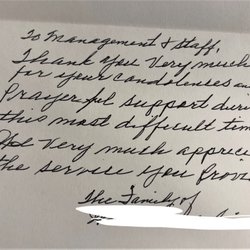 To Management & Staff,
Thank you very much
for your condolenses an
Prayerful support durin
this most difficult tim
very much apprec
the service you Prov
The Family of